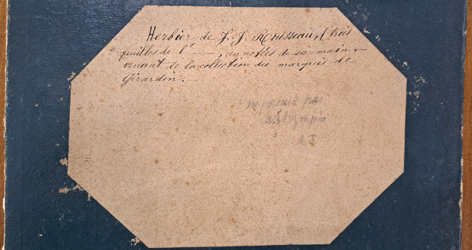 Herbier de J. J. Rousseau, (trois
feuilles de l' ——, annotées de sa main
venant de la collection du marquis de
Girardin. —
par
A. J